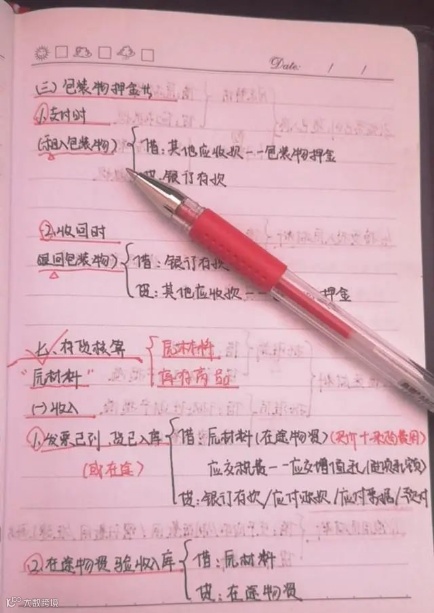 Date: / /
(三)包装物押金
①支付时
(租入包装物) 借:其他应收款——包装物押金
贷:银行存款
②收回时
(退回包装物) 借:银行存款
贷:其他应收款—— 押金
七、存货核算 原材料
库存商品
"原材料"
(一)收入
①发票已到,货已入库 借:原材料(在途物资)(买价+采购费用)
(或在途) 应交税费——应交增值税(进项税额)
贷:银行存款/应付账款/应付票据/预付
②在途物资验收入库 借:原材料
贷:在途物资